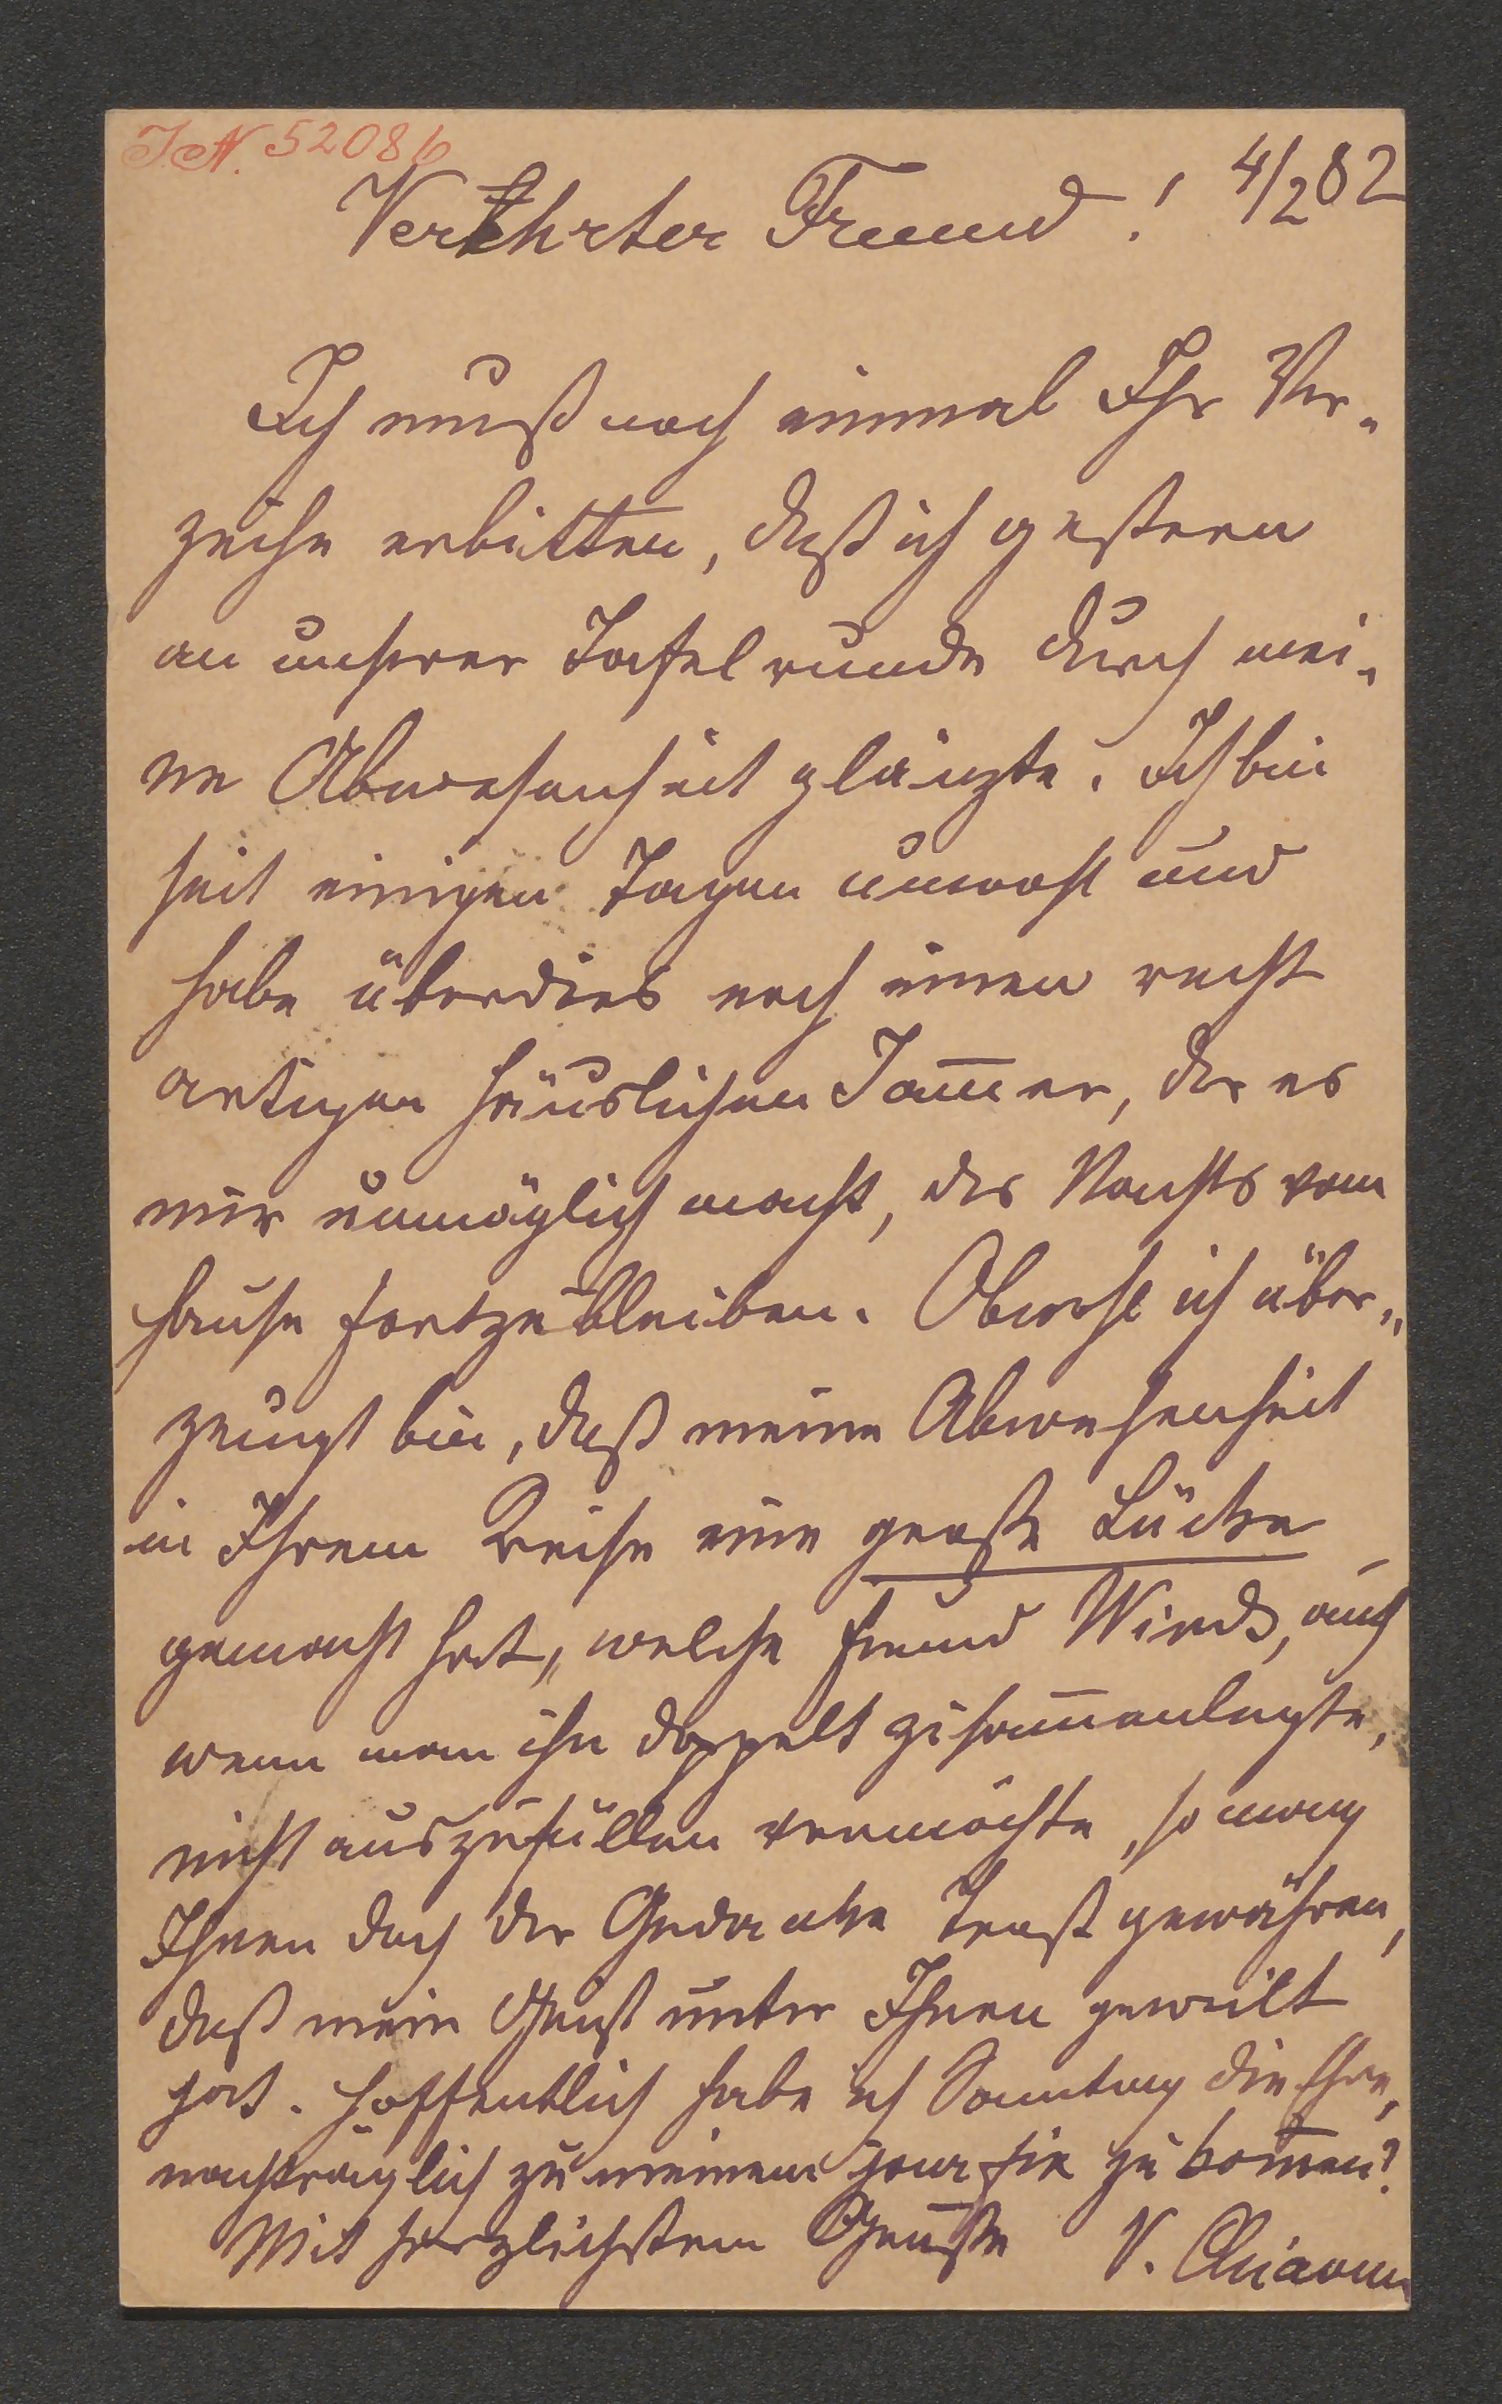 I.N. 52086
4/2 82
Verehrter Freund!
Ich muß noch einmal Ihr Ver-
zeihn erbitten, daß ich gestern
an unserer Tafelrunde durch mei-
ne Abwesenheit glänzte. Ich bin
seit einigen Tagen unwohl und
habe überdies noch einen recht
artigen häuslichen Jam̄er, der es
mir unmöglich macht, des Nachts vom
Hause fortzubleiben. Obwohl ich über-
zeugt bin, daß meine Abwesenheit
in Ihrem Kreise eine große Lücke
gemacht hat, welche Freund, auch
wenn man ihn doppelt zusam̄enlegte,
nicht auszufüllen vermöchte, so mag
Ihnen doch der Gedanke Trost gewähren,
daß mein Geist unter Ihnen geweilt
hat. Hoffentlich habe ich Sonntag die Ehre,
nachträglich zu meinem jour fix zu kom̄en?
Mit herzlichstem Gruße V. Chiavacci